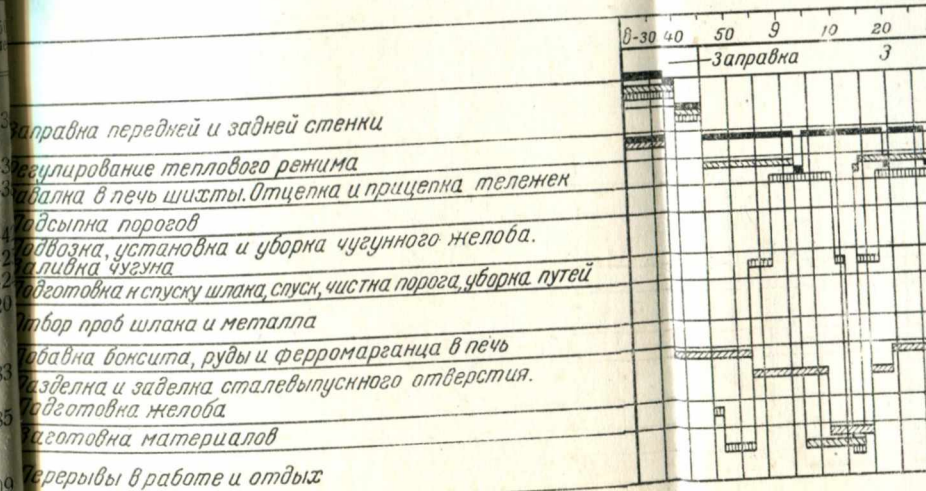 8-30 40 50 9 10 20
Заправка 3
Заправка передней и задней стенки
Регулирование теплового режима
Завалка в печь шихты. Отцепка и прицепка тележек
Подсыпка порогов
Подвозка, установка и уборка чугунного желоба.
Заливка чугуна
Подготовка к спуску шлака, спуск, чистка порога, уборка путей
Отбор проб шлака и металла
Добавка боксита, руды и ферромарганца в печь
Разделка и заделка сталевыпускного отверстия.
Подготовка желоба
Заготовка материалов
Перерывы в работе и отдых